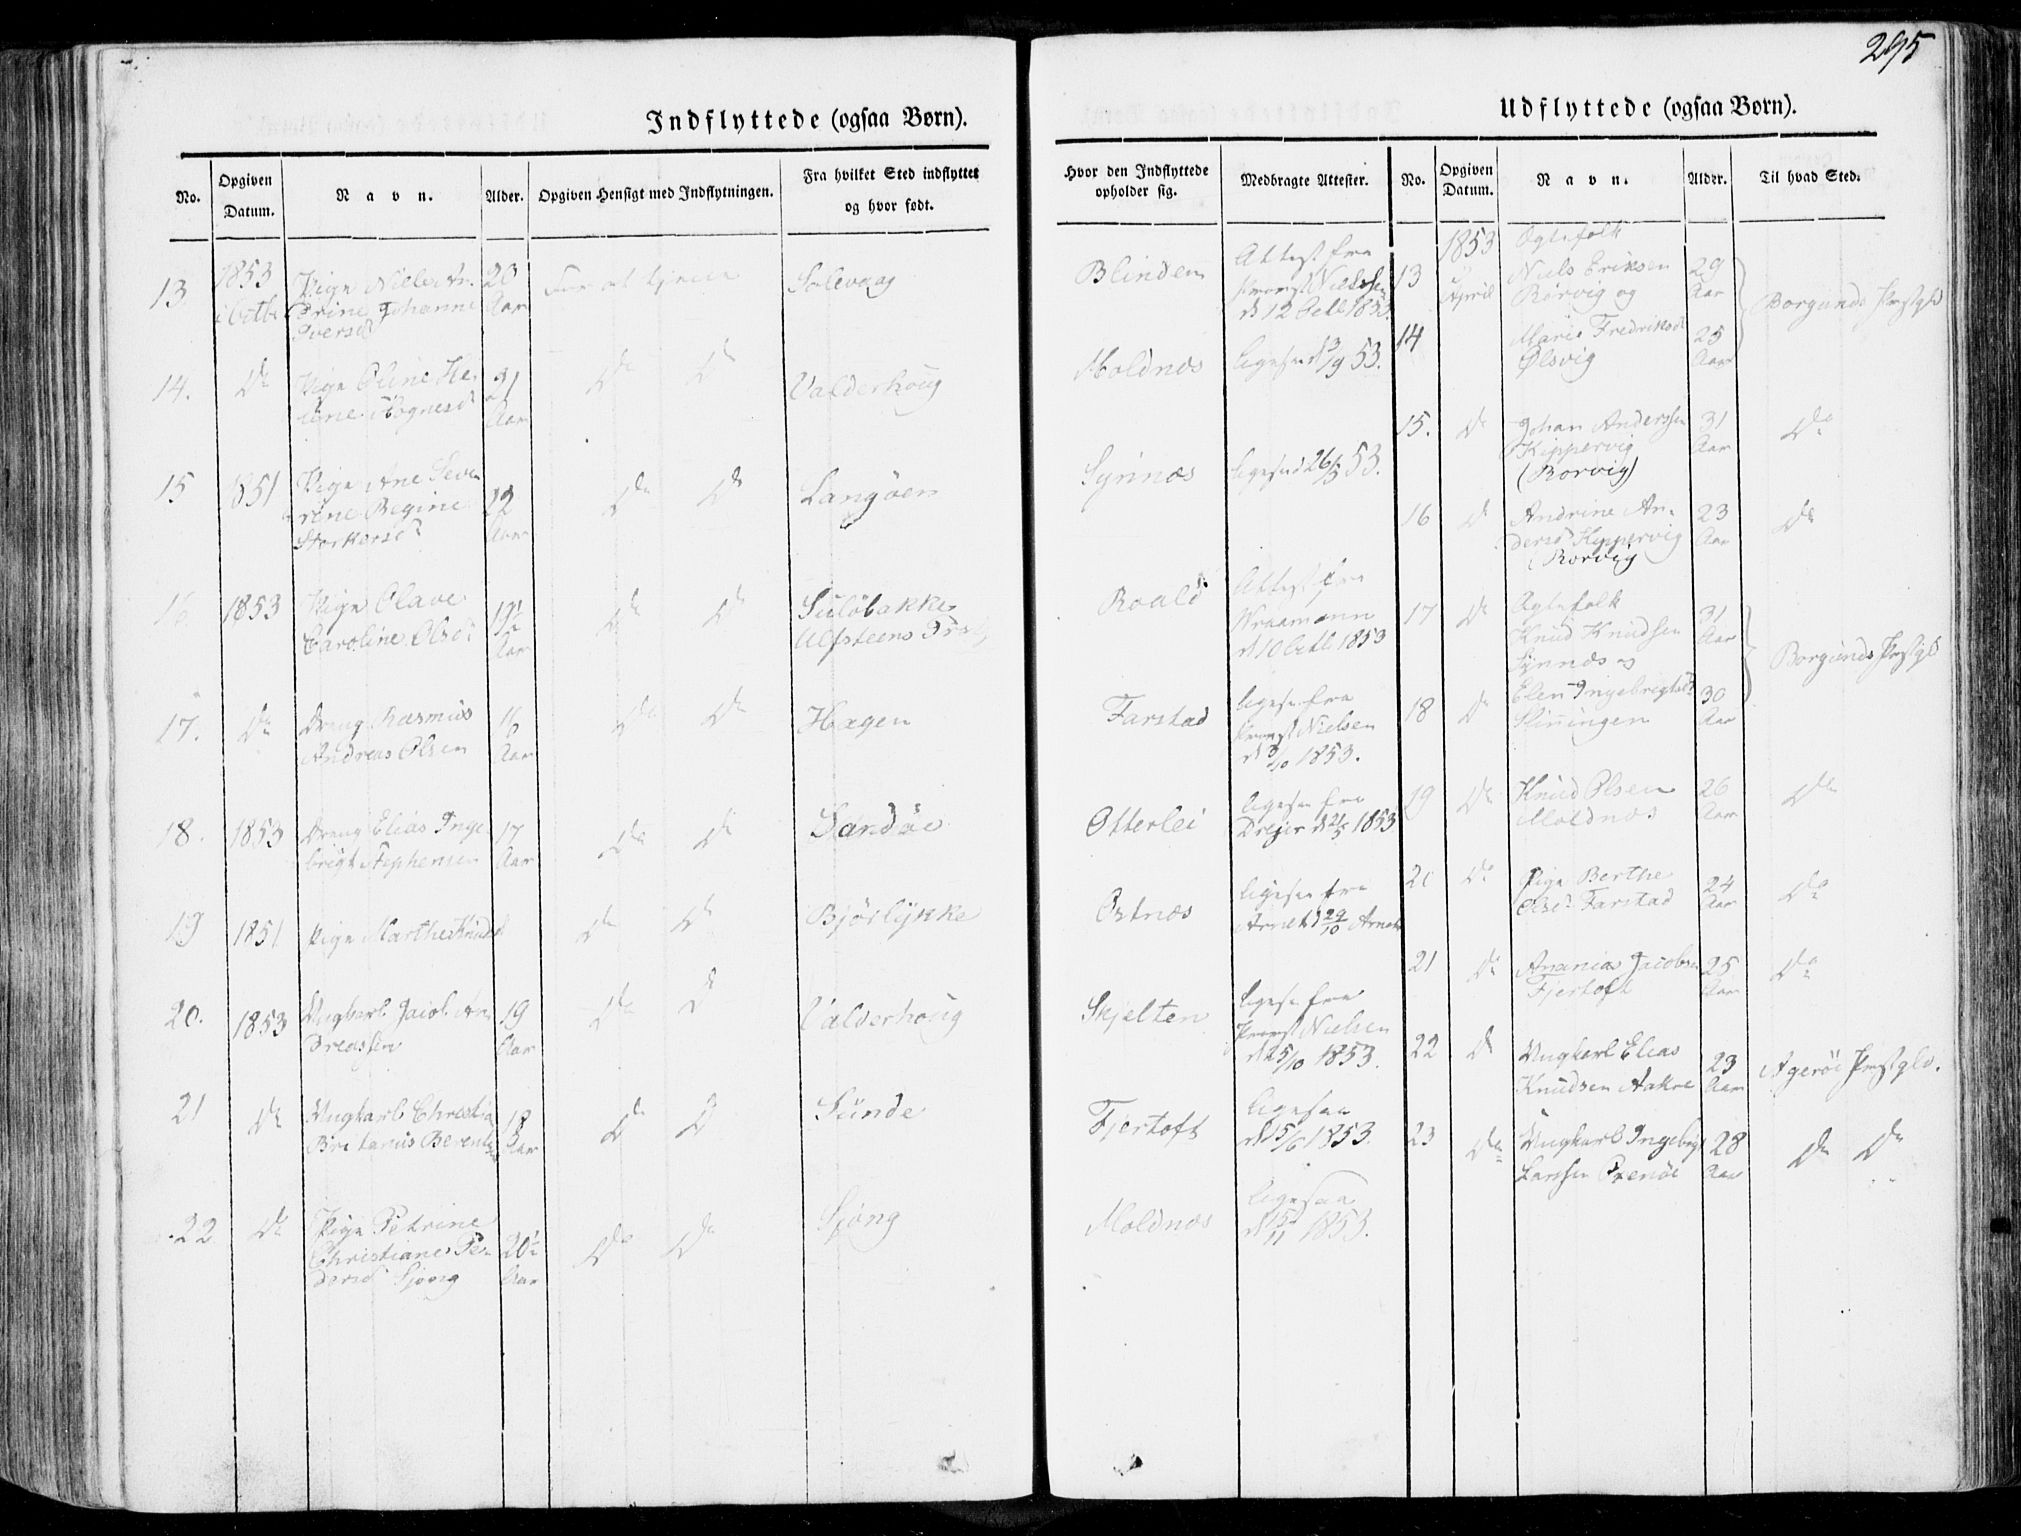 295
Indflyttede (ogsaa Børn).
No.
Opgiven Datum.
Navn.
Alder.
Opgiven Hensigt med Indflytningen.
Fra hvilket Sted indflyttet og hvor født.
Hvor den Indflyttede opholder sig.
Medbragte Attester.
13 1853 Octb Pige Nille An-
drine Johanne
Iversd 20 Aar For at tjene Solevaag Blindem Attest fra
Provst Nielsen
d 12 Octb 1853.
14. Do Pige Oline He-
lene Hognesd 21 Aar Do Do Valderhoug Moldnes ligesaa d 3/9 53.
15 1851 Pige Ane Seve-
rine Regine
Storkersd 22 Aar Do Do Langøen Synnæs ligesaa d 26/5 53.
16 1853 Pige Olave
Caroline Olsd 19½ Aar Do Do Suløbakke
Ulfsteens Prstg Roald Attest fra
Wraamann
d 10 Octb 1853
17. Do Dreng Rasmus
Andreas Olsen 16 Aar Do Do Hagen Farstad ligesaa fra
Provst Nielsen
d 3/10 1853.
18. 1853 Dreng Elias Inge-
brigt Stephensen 17 Aar Do Do Sandøe Otterlei ligesaa fra
Drejer d 2/5 1853
19 1851 Pige Marthe Knudsd Do Do Bjørlykke Østnes ligesaa fra
Arnet d 29/10
20. 1853 Ungkarl Jacob An-
dreassen 19 Aar Do Do Valderhoug Skjelten ligesaa fra
Provst Nielsen
d 25/10 1853.
21 Do Ungkarl
Berentsen 18 Aar Do Do Sunde Fjertoft ligesaa
d 15/6 1853.
22 Do Pige Petrine
Christiane Pe-
dersd Sjong 20½ Aar Do Do Sjong Moldnes ligesaa
d 15/11 1853.
Udflyttede (ogsaa Børn).
No.
Opgiven Datum.
Navn.
Alder.
Til hvad Sted.
13 1853 April Ægtefolk
Niels Eriksen
Rørvig og 29 Aar Borgunds Prstgld
14 Marie Fredriksd
Ølsvig 25 Aar
15. Do Johan Anderssen
Kippervig
(Rørvig) 31 Aar Do
16 Do Andrine An-
dersd Kippervig
(Rørvig 23 Aar Do
17 Do Ægtefolk
Knud Knudsen
Synnes og 31 Aar Borgunds Prstgld
18 Do Elen Ingebrigtsd
Slinningen 30 Aar
19 Do Knud Olsen
Moldnes 26 Aar Do
20 Do Pige Berthe
Olsd Farstad 24 Aar Do
21 Do Ananias Jacobsen
Fjertoft 25 Aar Do
22 Do Ungkarl Elias
Knudsen Aakre 23 Aar Agerøe Prstgld.
23 Do Ungkarl Ingebrigt
Larssen 28 Aar Do Do